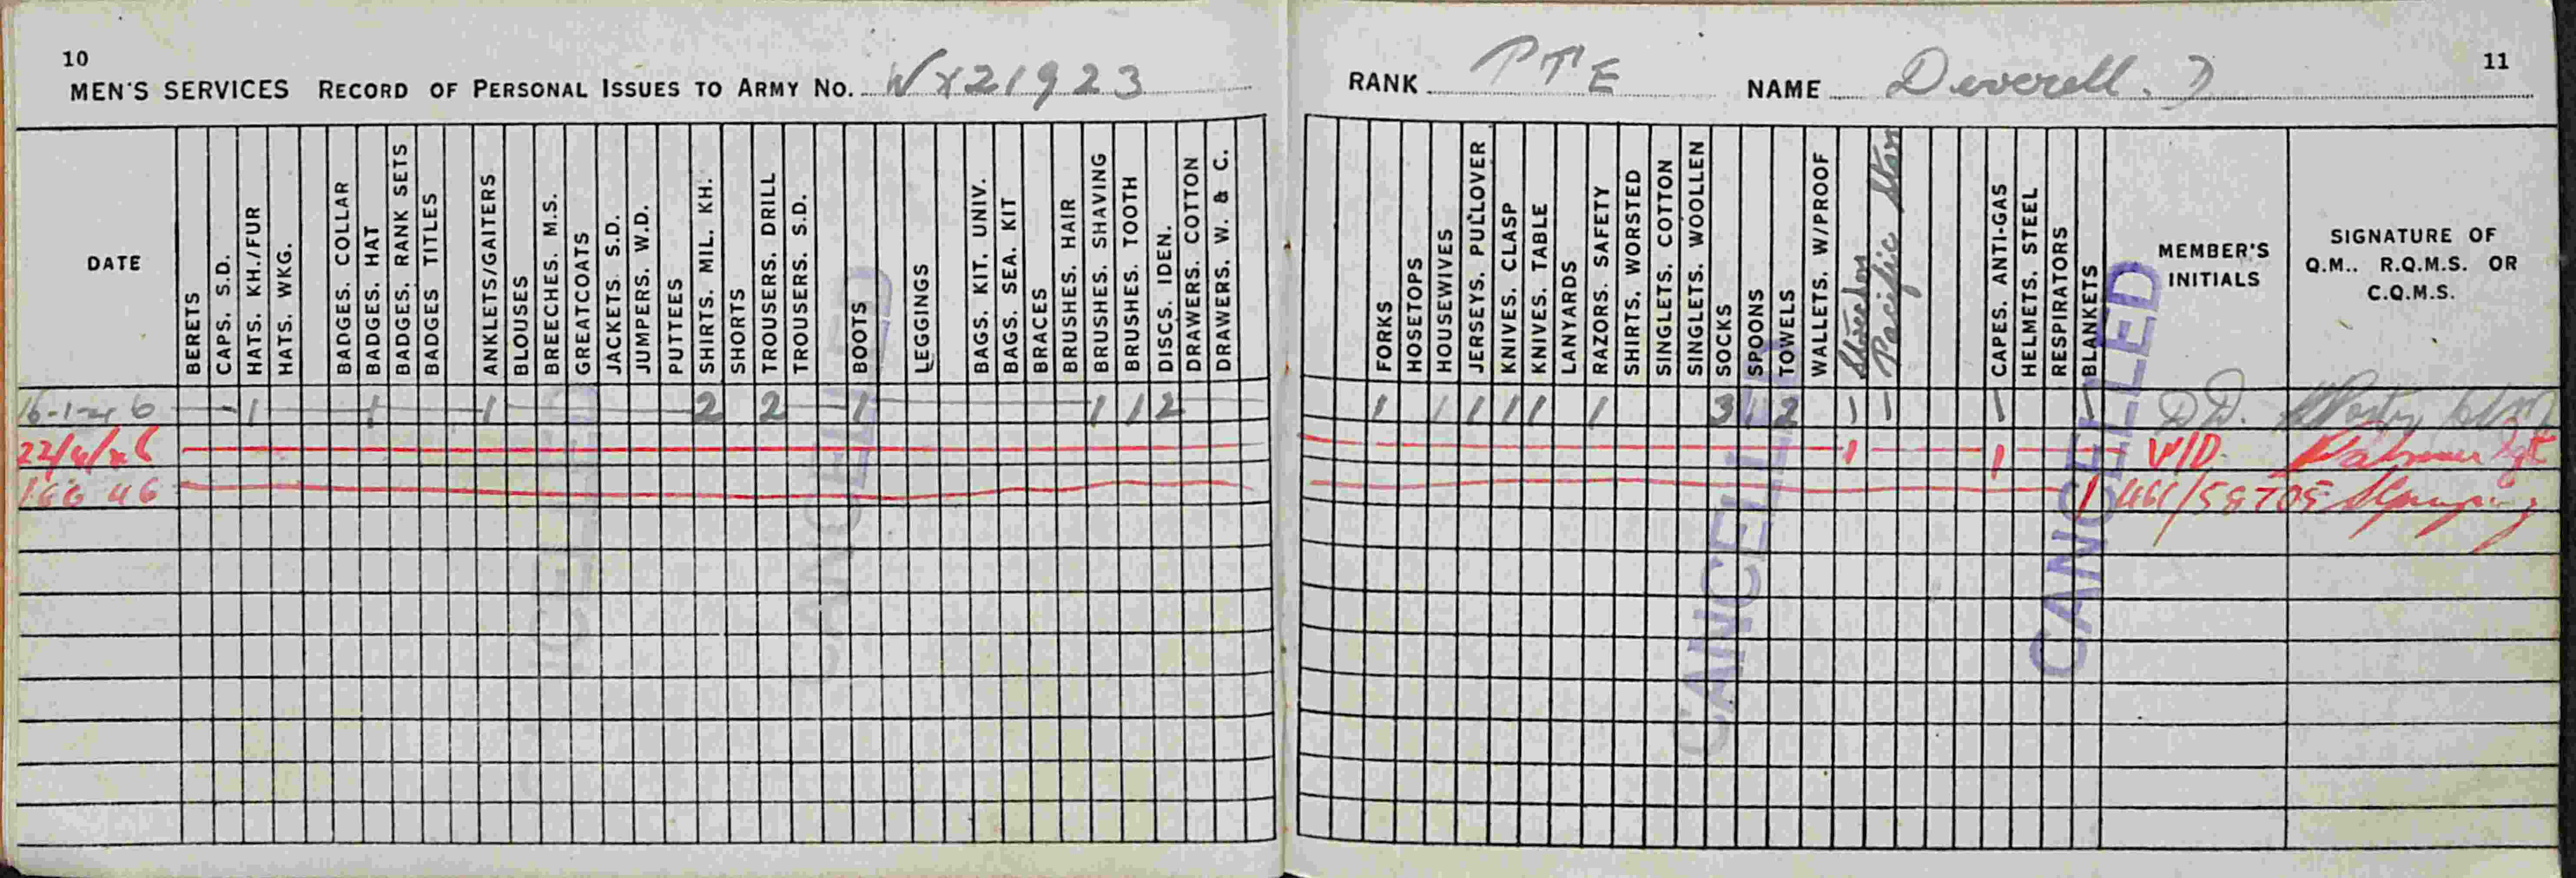 10
MEN'S SERVICES RECORD OF PERSONAL ISSUES TO ARMY NO. WX21923
RANK PTE NAME Deverell. D
11
DATE
BERETS
CAPS. S.D.
HATS. KH./FUR
HATS. WKG.
BADGES. COLLAR
BADGES. HAT
BADGES. RANK SETS
BADGES TITLES
ANKLETS/GAITERS
BLOUSES
BREECHES. M.S.
GREATCOATS
JACKETS. S.D.
JUMPERS. W.D.
PUTTEES
SHIRTS. MIL. KH.
SHORTS
TROUSERS. DRILL
TROUSERS. S.D.
BOOTS
LEGGINGS
BAGS. KIT. UNIV.
BAGS. SEA. KIT
BRACES
BRUSHES. HAIR
BRUSHES. SHAVING
BRUSHES. TOOTH
DISCS. IDEN.
DRAWERS. COTTON
DRAWERS. W. & C.
FORKS
HOSETOPS
HOUSEWIVES
JERSEYS. PULLOVER
KNIVES. CLASP
KNIVES. TABLE
LANYARDS
RAZORS. SAFETY
SHIRTS. WORSTED
SINGLETS. COTTON
SINGLETS. WOOLLEN
SOCKS
SPOONS
TOWELS
WALLETS. W/PROOF
Pacific Star
CAPES. ANTI-GAS
HELMETS. STEEL
RESPIRATORS
BLANKETS
MEMBER'S
INITIALS
SIGNATURE OF
Q.M.. R.Q.M.S. OR
C.Q.M.S.
16-1-46 1 1 1 2 2 1 1 1 2 1 1 1 1 1 1 3 1 2 1 1 1 1 DD.
22/4/46 1 1 Sgt
16 6 46 1
CANCELLED
CANCELLED
CANCELLED
CANCELLED